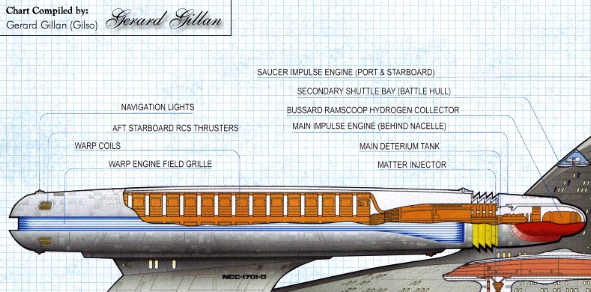 Chart Compiled by:
Gerard Gillan (Gilso)
Gerard Gillan
SAUCER IMPULSE ENGINE (PORT & STARBOARD)
SECONDARY SHUTTLE BAY (BATTLE HULL)
NAVIGATION LIGHTS
BUSSARD RAMSCOOP HYDROGEN COLLECTOR
AFT STARBOARD RCS THRUSTERS
MAIN IMPULSE ENGINE (BEHIND NACELLE)
WARP COILS
MAIN DETERIUM TANK
WARP ENGINE FIELD GRILLE
MATTER INJECTOR
NCC-1701-D